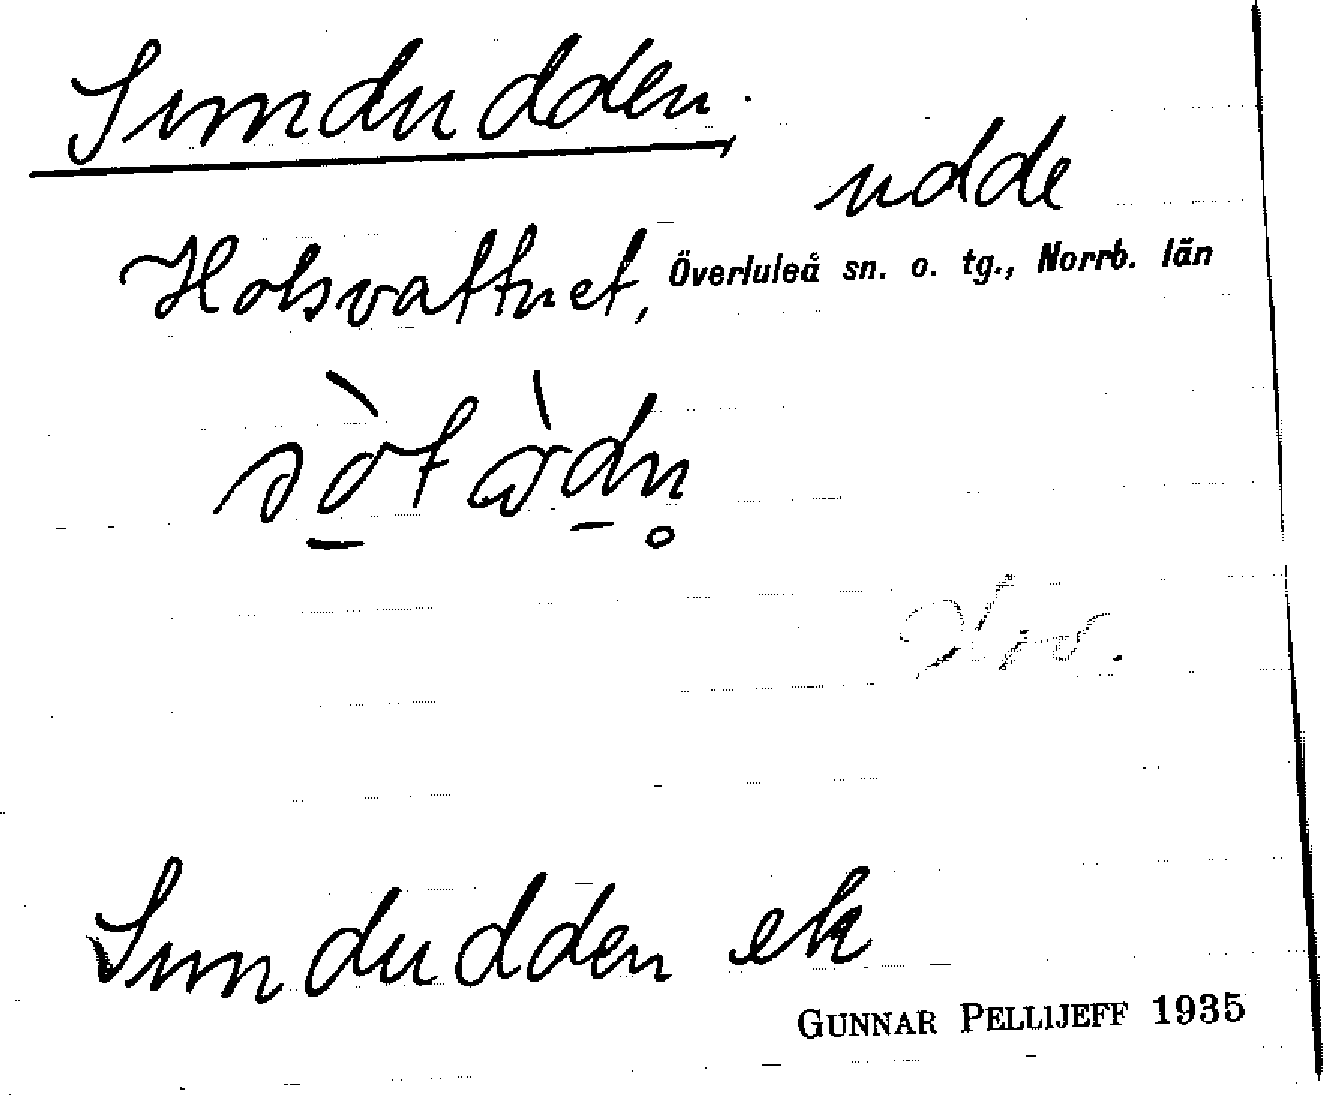 Sundudden.
udde
Holsvattnet, Överluleå sn. o. tg., Norrb. län
Sundudden ek
GUNNAR PELLIJEFF 1935